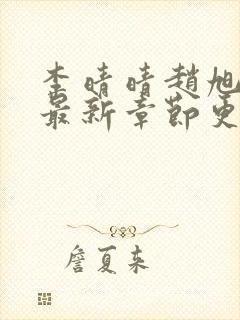 李晴晴趙旭
最新章節更
詹夏來